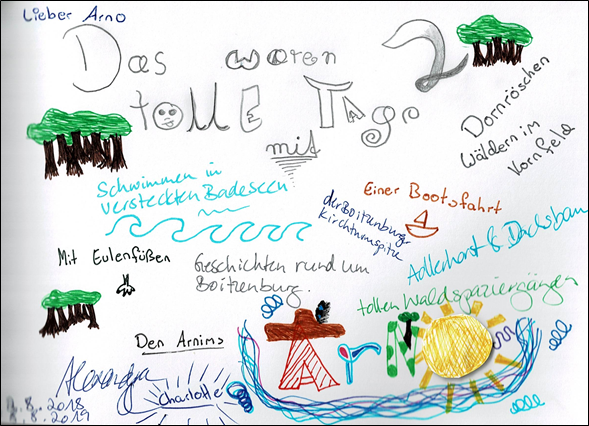 Lieber Arno
Das waren 2
tolle Tage
mit
Dornröschen
Wäldern im
Kornfeld
Schwimmen in
versteckten Badeseen
Einer Bootsfahrt
der Boitzenburger
Kirchturmspitze
Adlerhorst & Dachsbau
Mit Eulenfüßen
Geschichten rund um
Boitzenburg.
tollen Waldspaziergängen
Den Arnims
ArNO
Alexandra
Charlotte
8.2018
8.2019